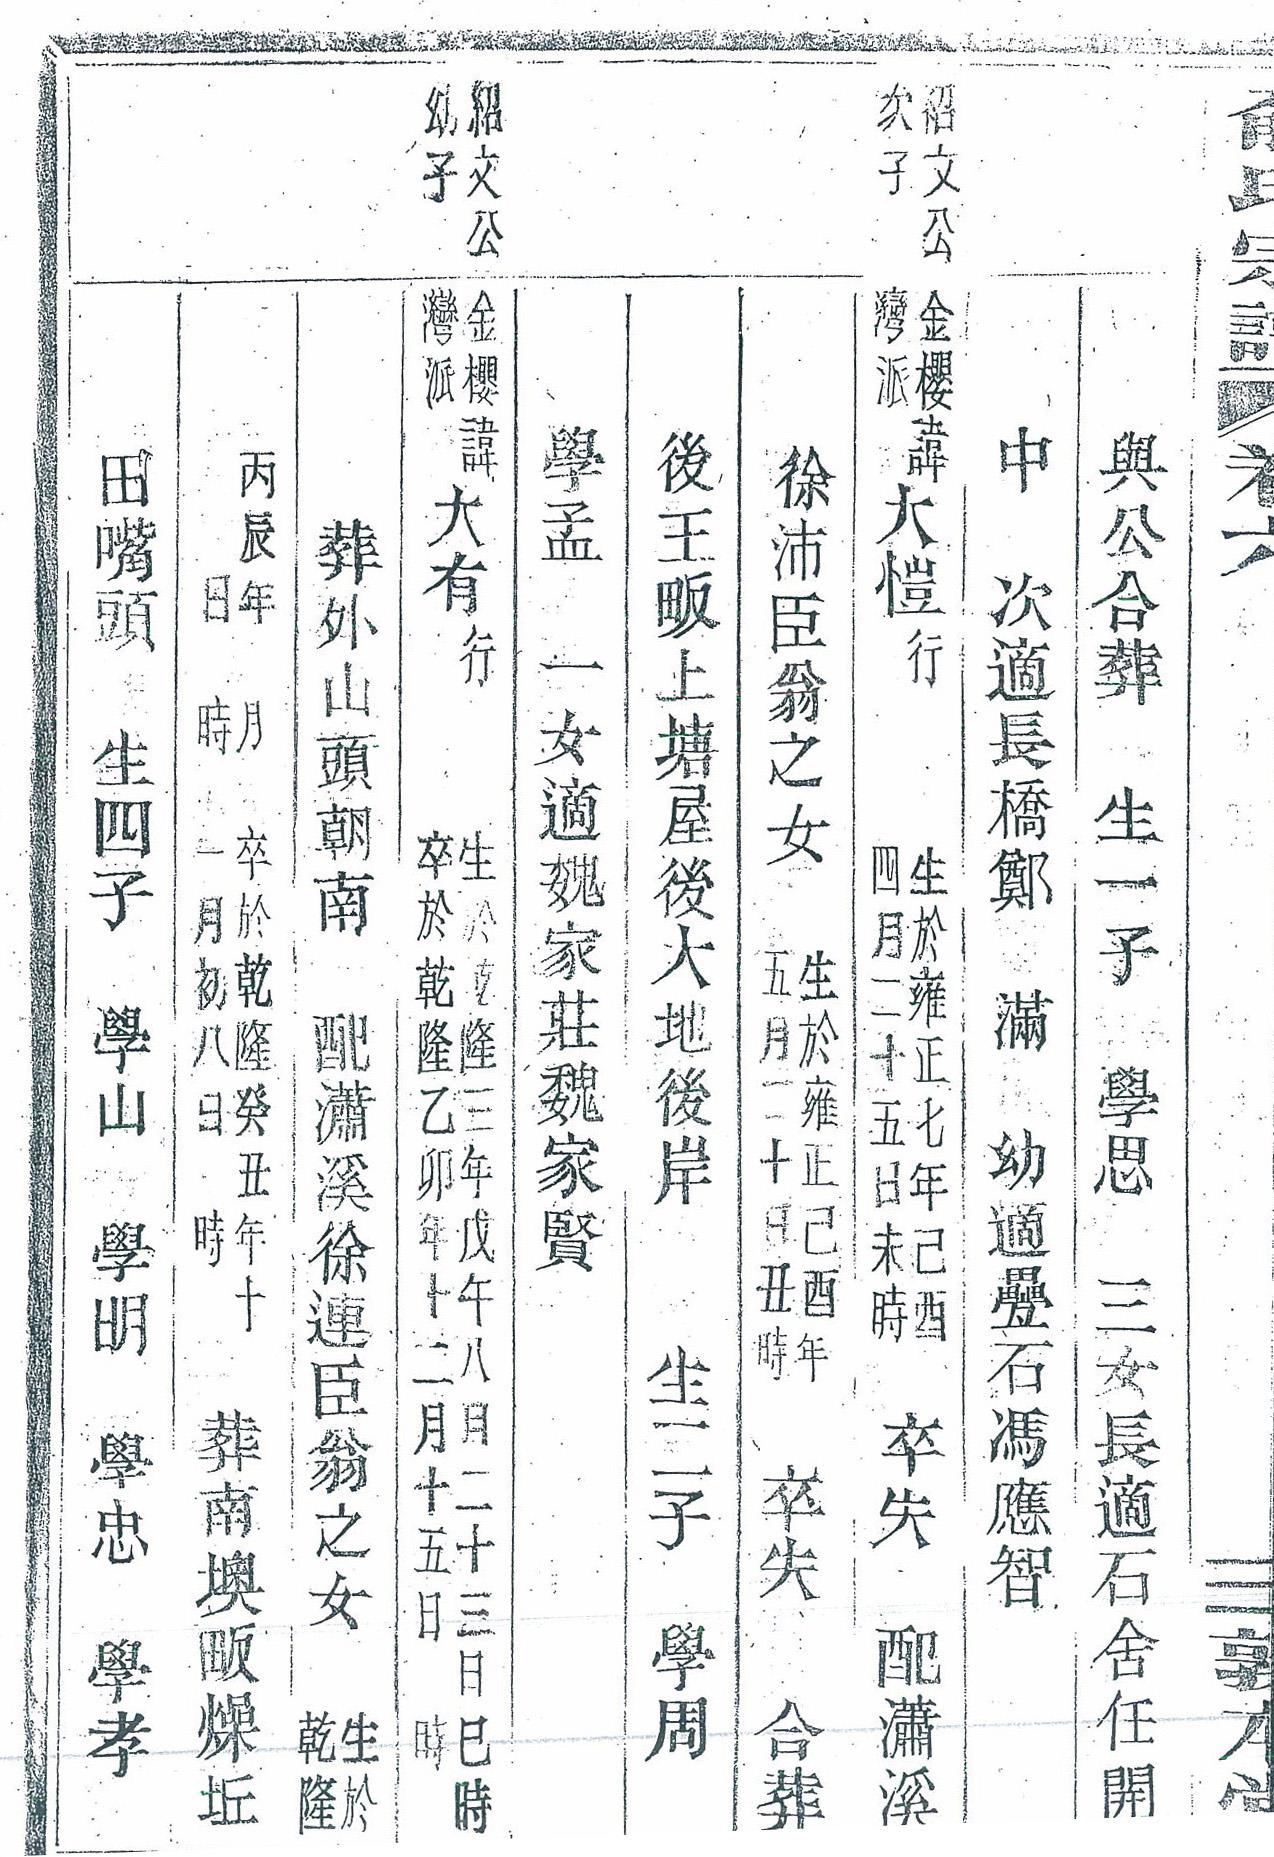 俞氏宗譜 卷六 三 敦本堂
與公合葬 生一子 學思 三女長適石舍任開
中 次適長橋鄭 滿 幼適疊石馮應智
紹文公
次子
金櫻
灣派
諱大愷行
生於雍正七年己酉
四月二十五日未時
卒失 配瀟溪
徐沛臣翁之女
生於雍正己酉年
五月二十日丑時
卒失 合葬
後王畈上塘屋後大地後岸 生二子 學周
學孟 一女適魏家莊魏家賢
紹文公
幼子
金櫻
灣派
諱大有行
生於乾隆三年戊午八月二十三日巳時
卒於乾隆乙卯年十二月十五日 時
葬外山頭朝南 配瀟溪徐連臣翁之女
生於
乾隆
丙辰年 月
日 時
卒於乾隆癸丑年十
一月初八日 時
葬南墺畈燥坵
田嘴頭 生四子 學山 學明 學忠 學孝